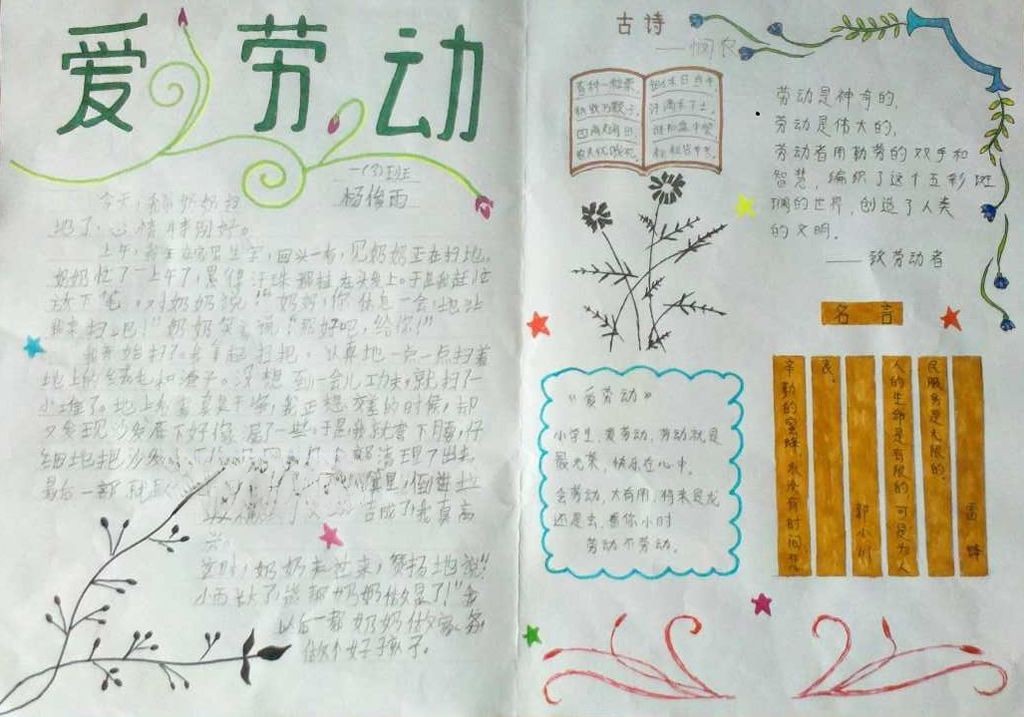 爱劳动
一(3)班
杨俊西
今天,和奶奶扫
地了,心情特别好。
上午,我在写生字,回头一看,见奶奶正在扫地,
奶奶忙了一上午了,累得汗珠都挂在头发上。于是我赶忙
放下笔,对奶奶说:"奶奶,你休息一会,地让
我来扫吧!"奶奶笑了说:"那好吧,给你!"
我开始扫了。我拿起扫把,认真地一点一点扫着
地上的
和渣子。没想到一会儿工夫,就扫了一
小堆了。地上
干净,我正想交差的时候,却
又发现沙发底下好像漏了一些。于是我就弯下腰,仔
细地把沙发
清理了出来。
最后一部
倒进垃
完成了我真高
兴。
这时,奶奶走过来,赞扬地说:"
小西长大了能帮奶奶做家务了!"我
以后一帮奶奶做家务,
做个好孩子。
古诗
——悯农
春种一粒粟,
秋收万颗子。
四海无闲田,
农夫犹饿死。
锄禾日当午,
汗滴禾下土。
谁知盘中餐,
粒粒皆辛苦。
劳动是神奇的,
劳动是伟大的,
劳动者用勤劳的双手和
智慧,编织了这个五彩斑
斓的世界,创造了人类
的文明。
——致劳动者
《爱劳动》
小学生,爱劳动,劳动就是
最光荣,快乐在心中。
会劳动,大有用,将来是龙
还是虫,看你小时
劳动不劳动。
名言
辛勤的蜜蜂,永没有时间悲
哀。
郭小川
人的生命是有限的 可是为人
民服务是无限的。
雷锋